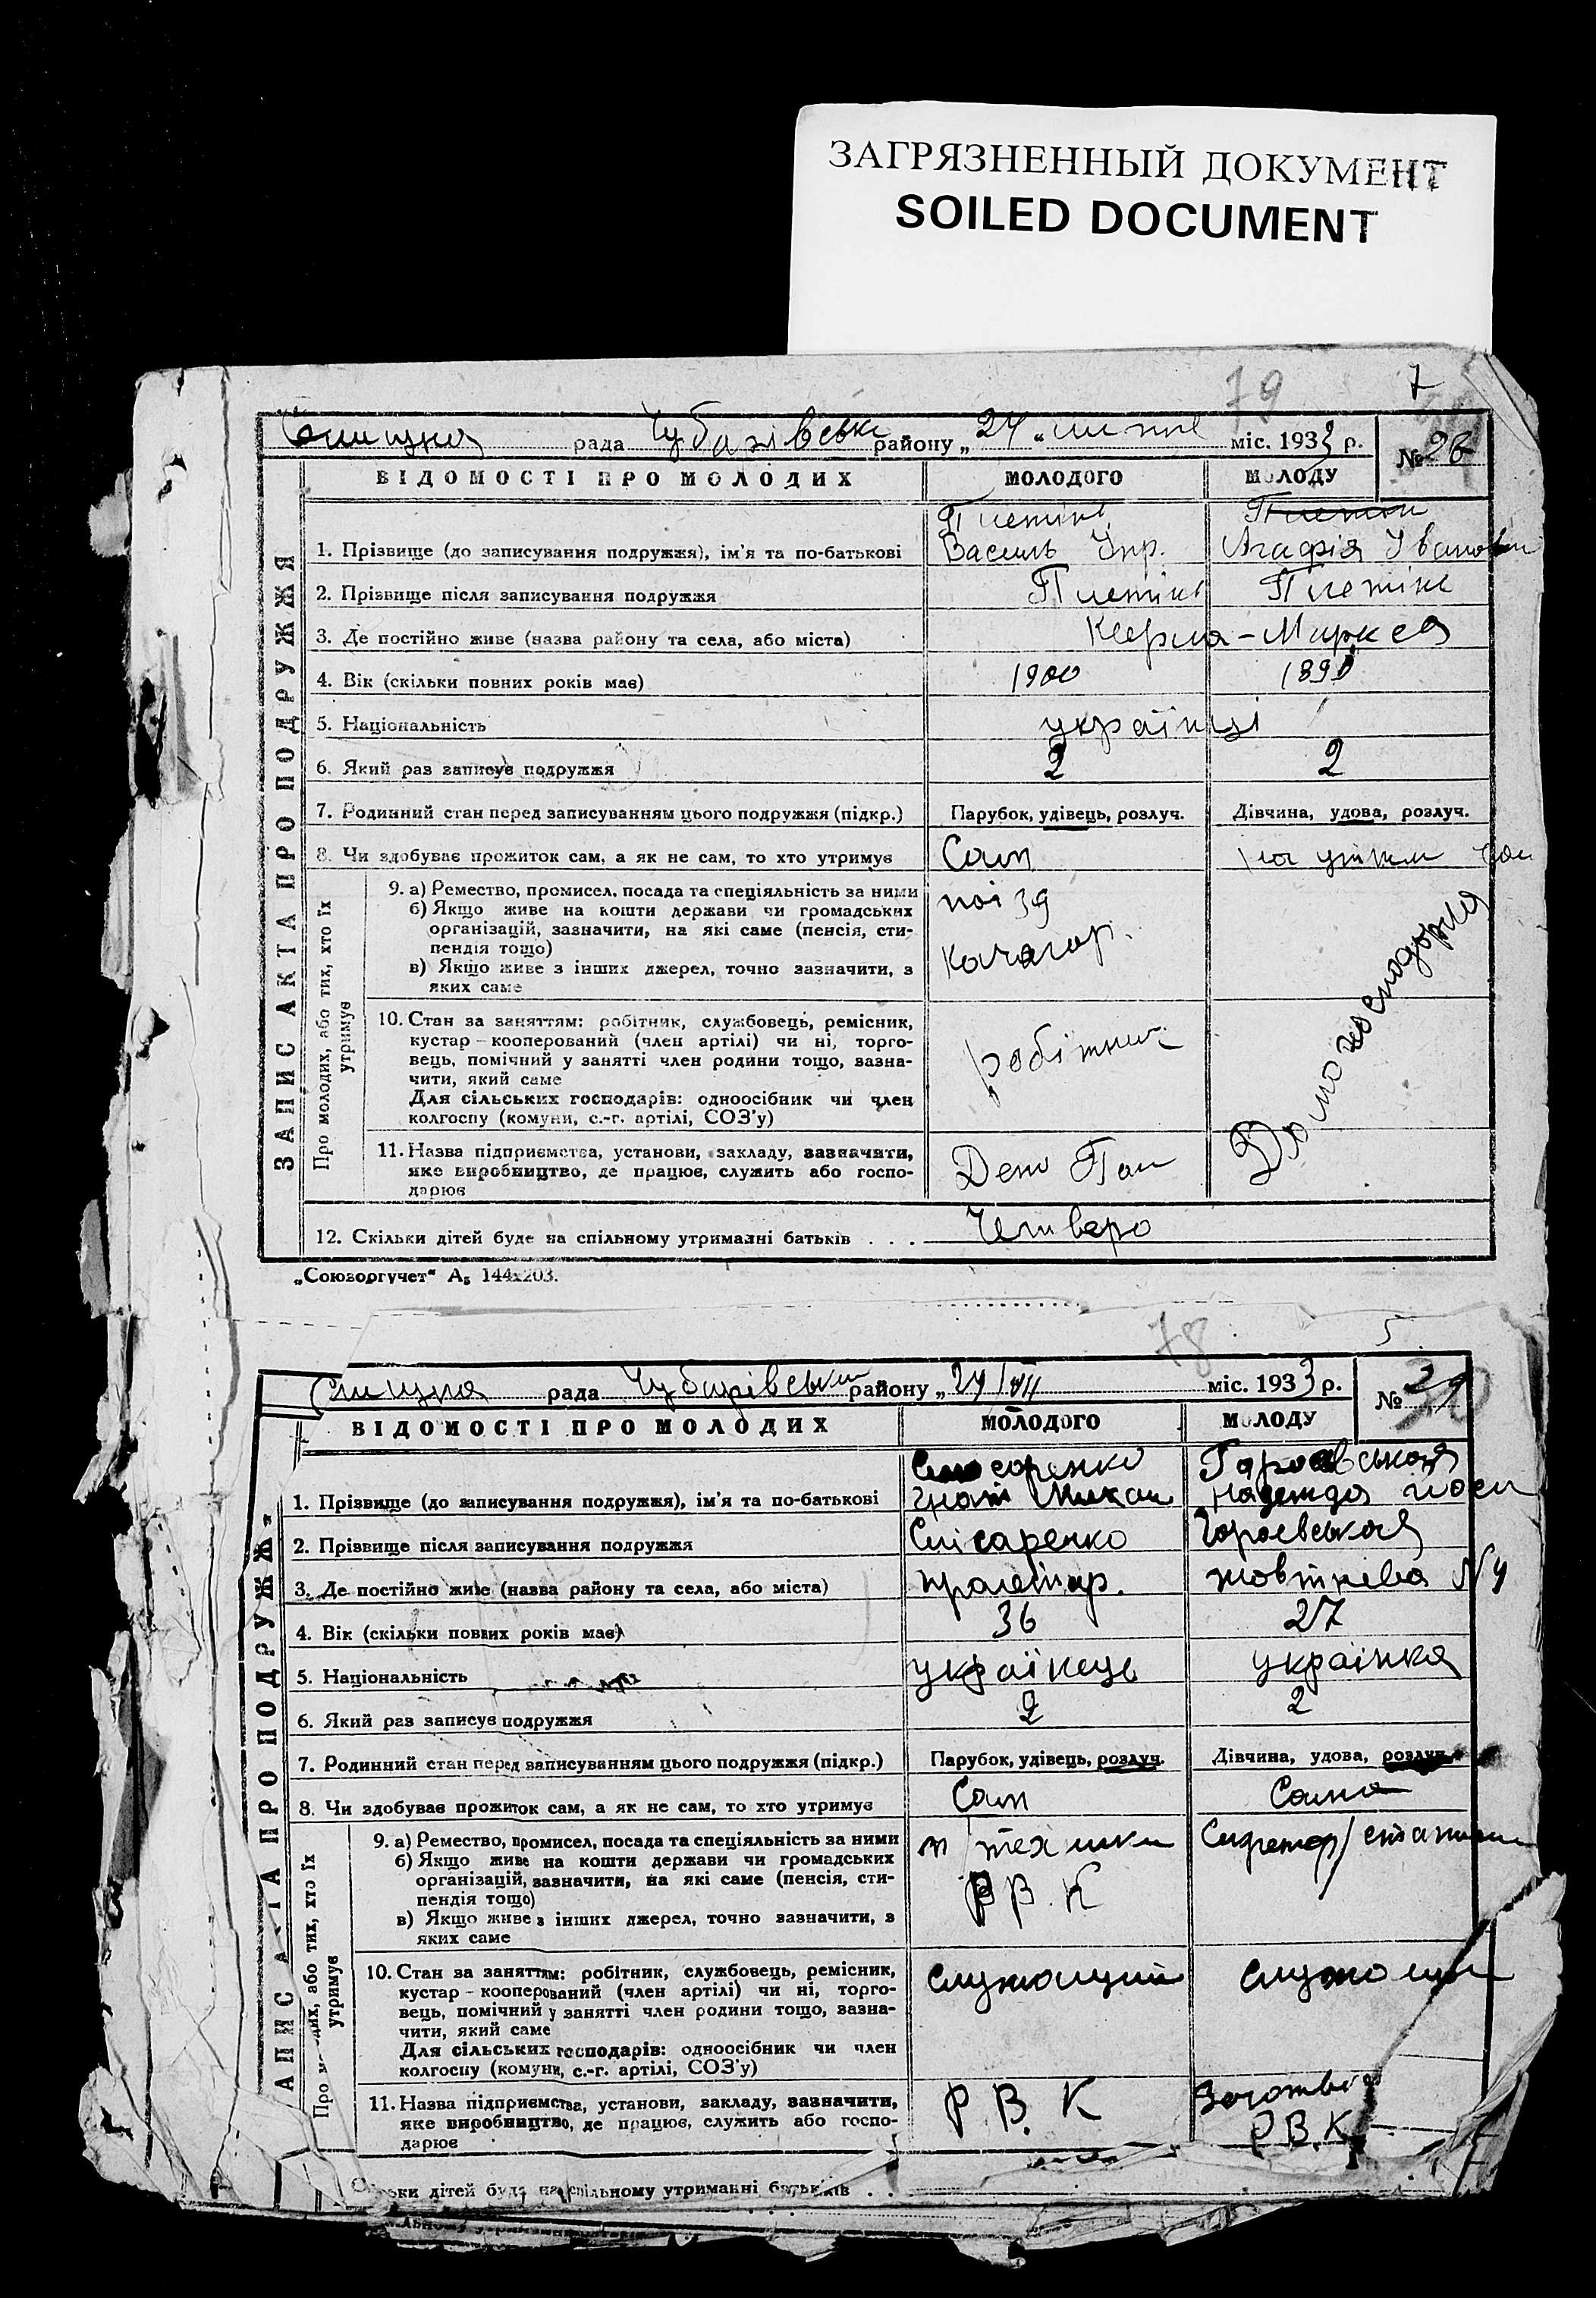 ЗАГРЯЗНЕННЫЙ ДОКУМЕНТ
SOILED DOCUMENT
79 7
рада Чубарівськ району „ 24 " липня міс. 1933 р. № 28
ВІДОМОСТІ ПРО МОЛОДИХ МОЛОДОГО МОЛОДУ
ЗАПИС АКТА ПРО ПОДРУЖЖЯ
1. Прізвище (до записування подружжя), ім'я та по-батькові Василь Агафія Іванов
2. Прізвище після записування подружжя
3. Де постійно живе (назва району та села, або міста)
4. Вік (скільки повних років має) 1900 189
5. Національність українці
6. Який раз записує подружжя 2 2
7. Родинний стан перед записуванням цього подружжя (підкр.) Парубок, удівець, розлуч. Дівчина, удова, розлуч.
8. Чи здобуває прожиток сам, а як не сам, то хто утримує Сам
Про молодих, або тих, хто їх утримує
9. а) Ремество, промисел, посада та спеціяльність за ними
б) Якщо живе на кошти держави чи громадських
організацій, зазначити, на які саме (пенсія, сти-
пендія тощо)
в) Якщо живе з інших джерел, точно зазначити, з
яких саме
поїзд
кочегар.
10. Стан за заняттям: робітник, службовець, ремісник,
кустар - кооперований (член артілі) чи ні, торго-
вець, помічний у занятті член родини тощо, зазна-
чити, який саме
Для сільських господарів: одноосібник чи член
колгоспу (комуни, с.-г. артілі, СОЗ'у)
робітник
Домогосподорка
11. Назва підприємства, установи, закладу, зазначити,
яке виробництво, де працює, служить або госпо-
дарює
Депо
12. Скільки дітей буде на спільному утриманні батьків . . . Четверо
„Союзоргучет" А5 144х203.
78 5
рада Чубарівськ району „ 24/VII міс. 1933 р. № 29
ВІДОМОСТІ ПРО МОЛОДИХ МОЛОДОГО МОЛОДУ
ЗАПИС АКТА ПРО ПОДРУЖЖ
1. Прізвище (до записування подружжя), ім'я та по-батькові Надежда
2. Прізвище після записування подружжя Слісаренко Гораевськая
3. Де постійно живе (назва району та села, або міста) пролетар. жовтнева N 4
4. Вік (скільки повних років має) 36 27
5. Національність українець українка
6. Який раз записує подружжя 2 2
7. Родинний стан перед записуванням цього подружжя (підкр.) Парубок, удівець, розлуч. Дівчина, удова, розлуч.
8. Чи здобуває прожиток сам, а як не сам, то хто утримує Сам Сама
Про молодих, або тих, хто їх утримує
9. а) Ремество, промисел, посада та спеціяльність за ними
б) Якщо живе на кошти держави чи громадських
організацій, зазначити, на які саме (пенсія, сти-
пендія тощо)
в) Якщо живе з інших джерел, точно зазначити, з
яких саме
Р.В.К
10. Стан за заняттям: робітник, службовець, ремісник,
кустар - кооперований (член артілі) чи ні, торго-
вець, помічний у занятті член родини тощо, зазна-
чити, який саме
Для сільських господарів: одноосібник чи член
колгоспу (комуни, с.-г. артілі, СОЗ'у)
служащий
11. Назва підприємства, установи, закладу, зазначити,
яке виробництво, де працює, служить або госпо-
дарює
Р.В.К
Р.В.К
дітей буде на спільному утриманні батьків . .